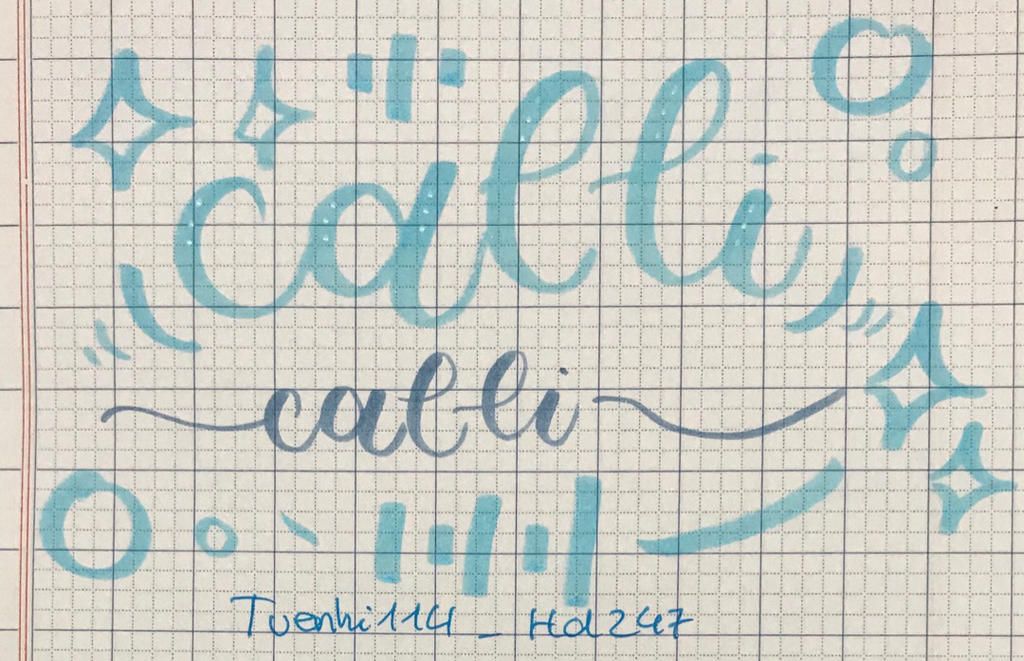 calli
calli
Tuenhi114 - Hd247